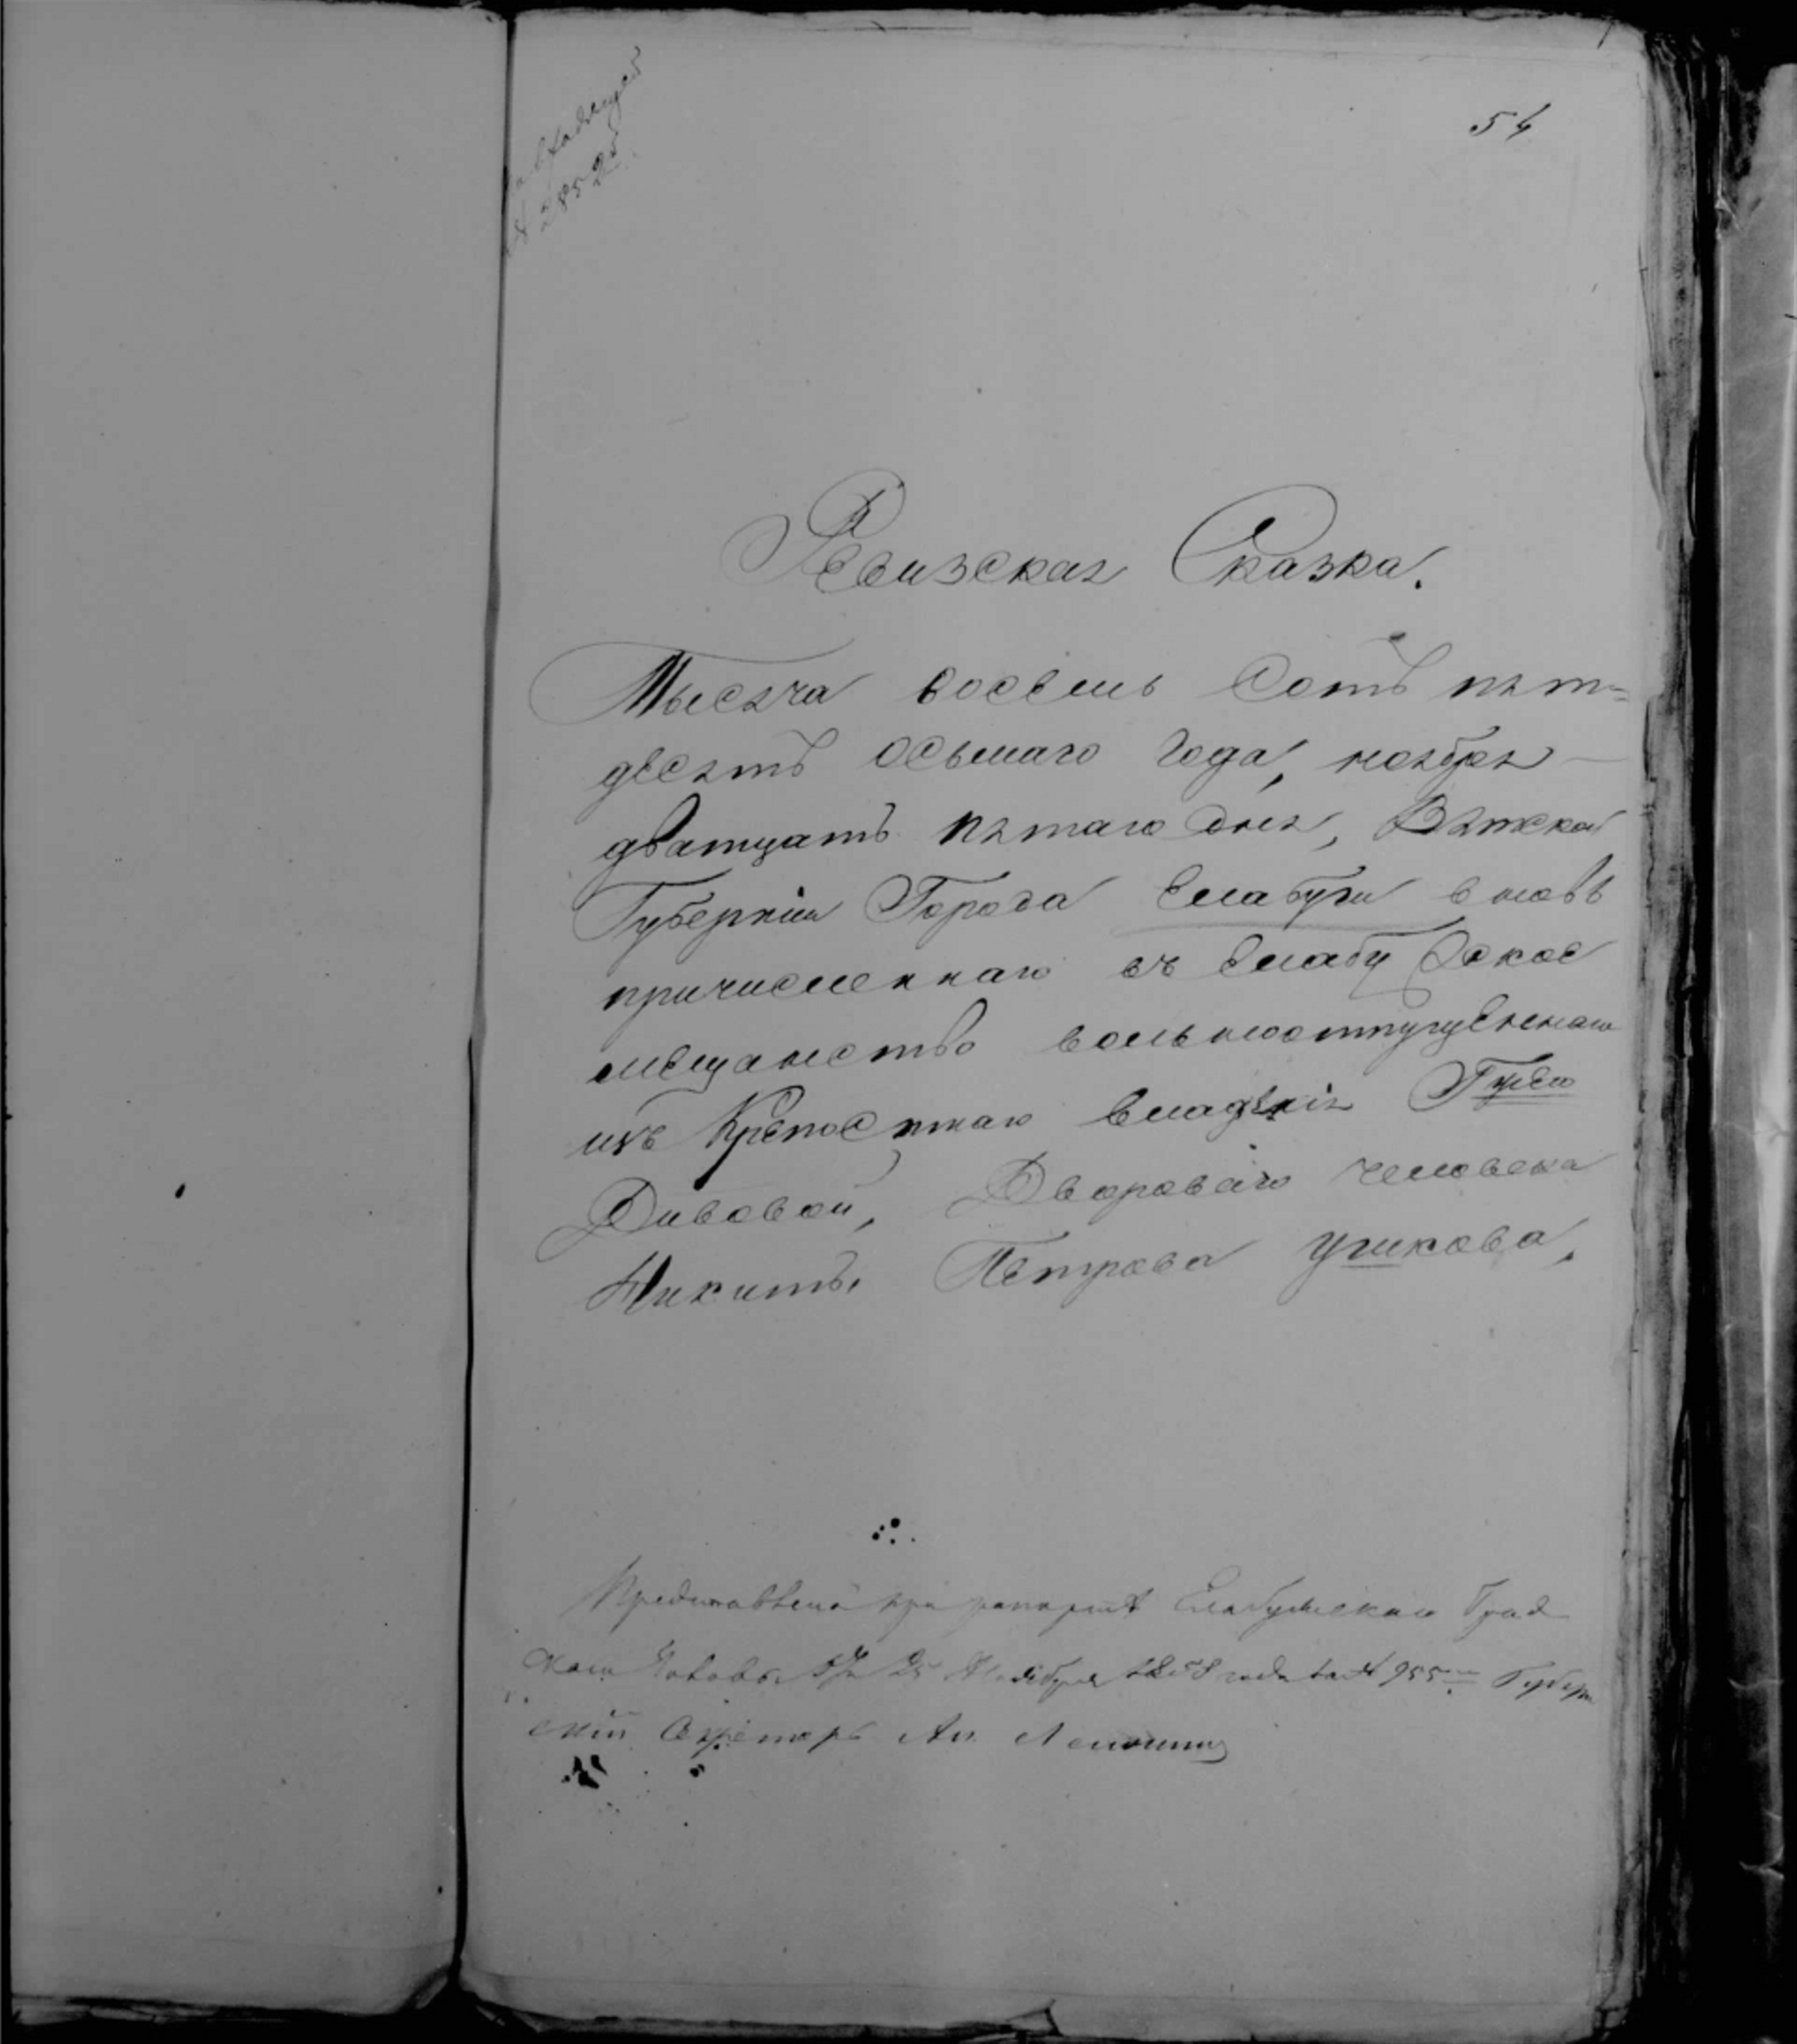 54
№ 2852
Ревизская Сказка.
Тысяча восемь сотъ пят=
десятъ осьмаго года, ноября
дватцать пятаго дня, Вятской
Губерніи Города Елабуги вновь
причисленнаго въ Елабужское
мещанство вольноотпущеннаго
изъ Крепостнаго владѣнія Гуж
Дивовой, Двороваго человека
Никиты Петрова Ушкова,
Представлена при рапортѣ Елабужскаго Град
ской 25 Ноября 1858 года за № 955 Губерн
скій Секретарь Ал.